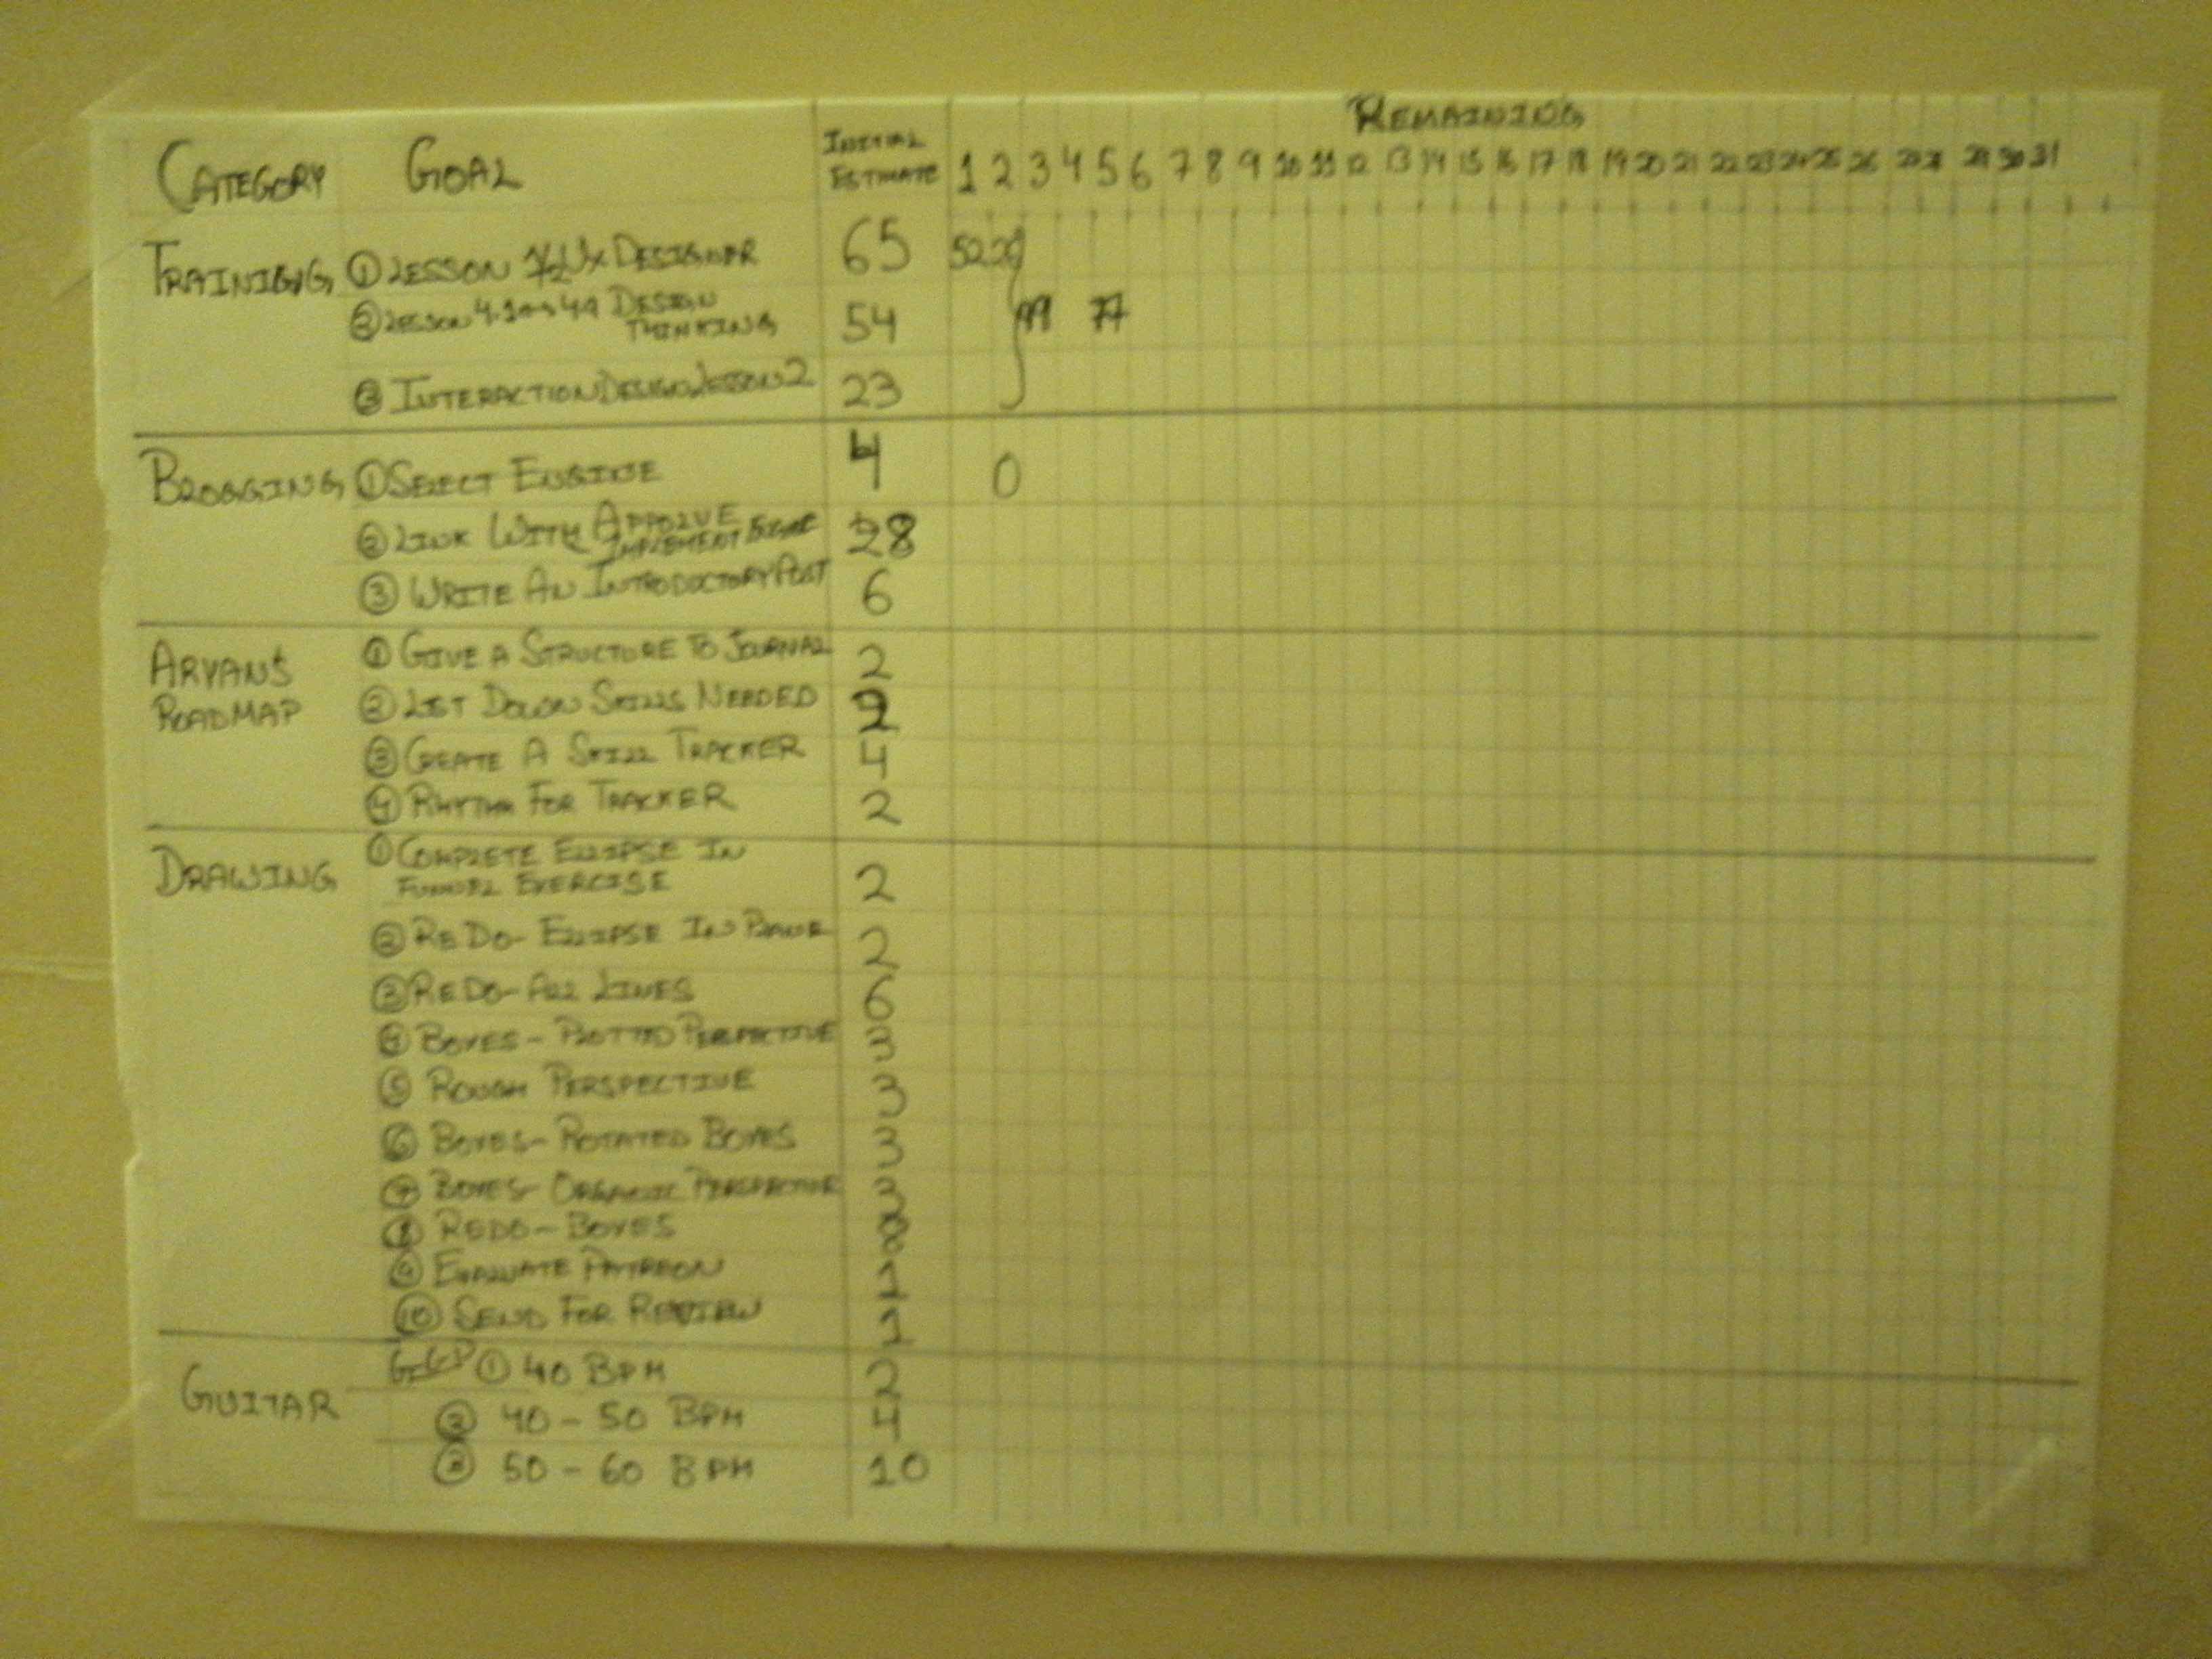 REMAINING
CATEGORY GOAL INITIAL ESTIMATE 1 2 3 4 5 6 7 8 9 10 11 12 13 14 15 16 17 18 19 20 21 22 23 24 25 26 29 30 31
TRAINING ① LESSON 1/2 UX DESIGNER 65 52
② LESSON DESIGN THINKING 54 77
③ INTERACTION DESIGN LESSON 2 23
BLOGGING ① SELECT ENGINE 4 0
② LINK WITH IMPLEMENT 28
③ WRITE AN INTRODUCTORY POST 6
ARYAN'S ROADMAP ① GIVE A STRUCTURE TO JOURNAL 2
② LIST DOWN SKILLS NEEDED 2
③ CREATE A SKILL TRACKER 4
④ RHYTHM FOR TRACKER 2
DRAWING ① COMPLETE ELLIPSE IN FUNNEL EXERCISE 2
② REDO - ELLIPSE IN PLANE 2
③ REDO - ALL LINES 6
④ BOXES - PLOTTED PERSPECTIVE 3
⑤ ROUGH PERSPECTIVE 3
⑥ BOXES - ROTATED BOXES 3
⑦ BOXES - ORGANIC PERSPECTIVE 3
⑧ REDO - BOXES 8
⑨ EVALUATE PATREON 1
⑩ SEND FOR REVIEW 1
GUITAR ① 40 BPM 2
② 40 - 50 BPM 4
③ 50 - 60 BPM 10